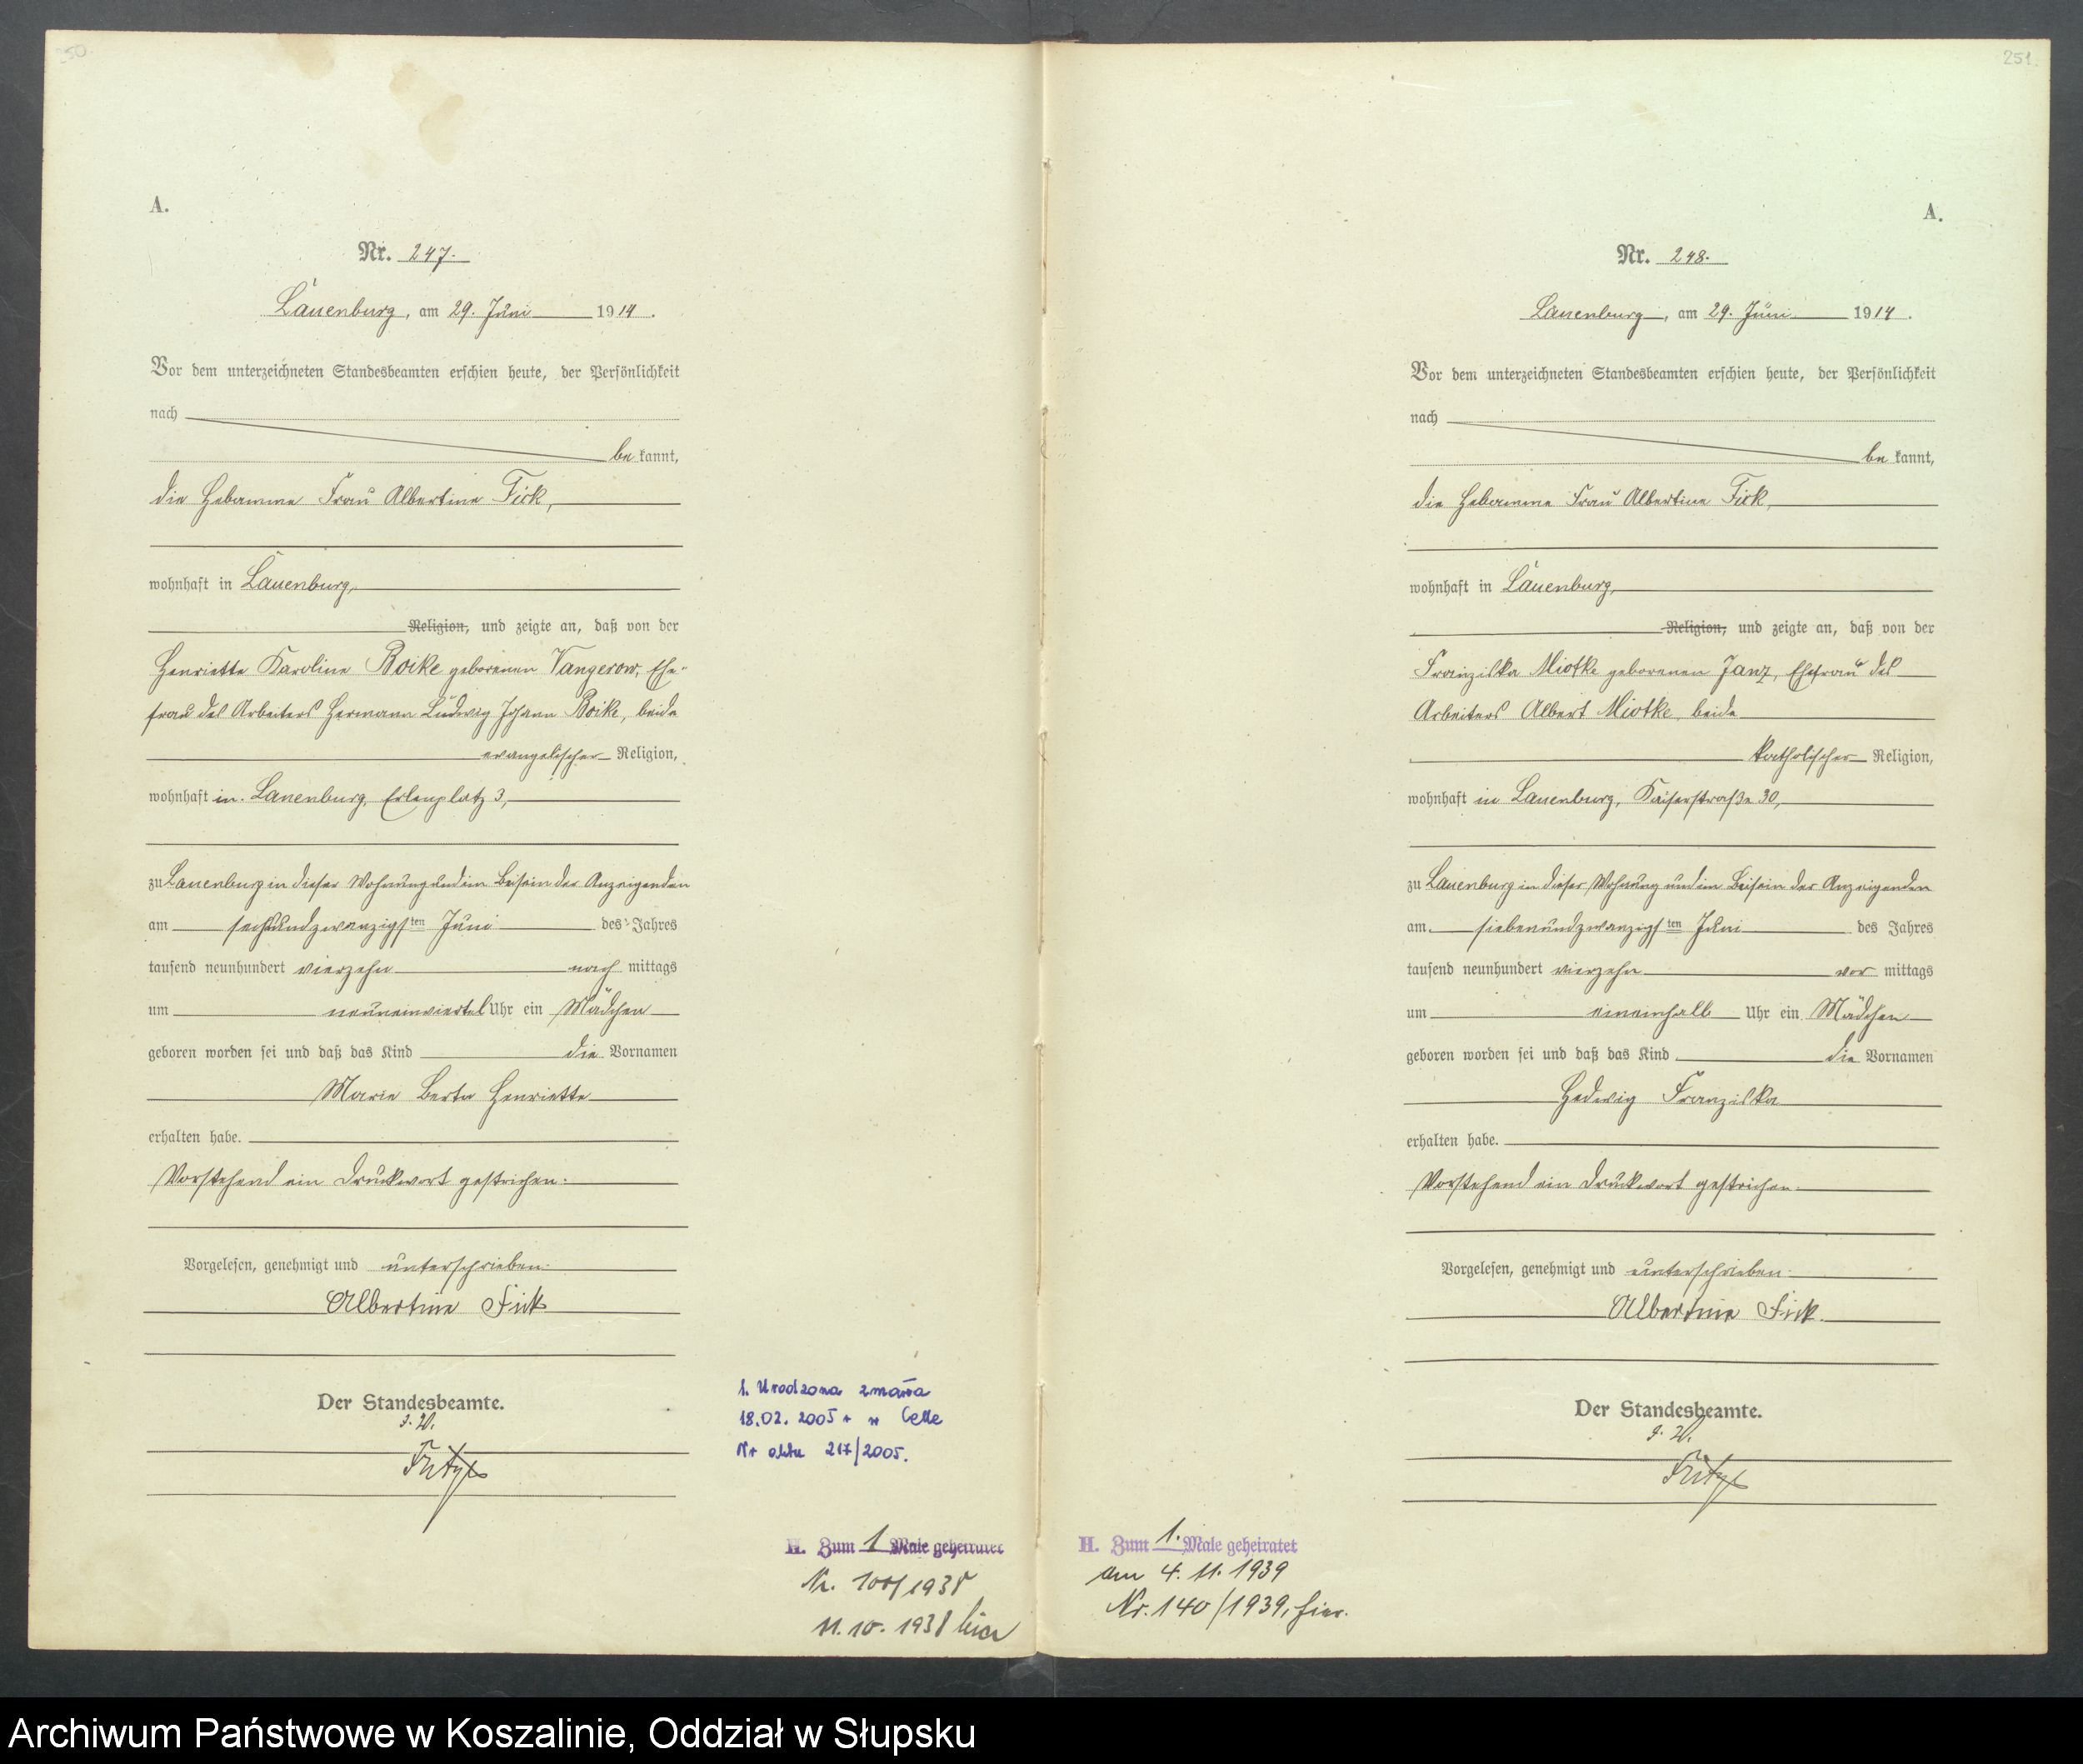 250.
A.
Nr. 247.
Lauenburg, am 29. Juni 1914.
Vor dem unterzeichneten Standesbeamten erschien heute, der Persönlichkeit
nach
be kannt,
die Hebamme Frau Albertine Fick,
wohnhaft in Lauenburg,
Religion, und zeigte an, daß von der
Henriette Karoline Boike geborenen Vangerow, Ehe-
frau des Arbeiters Hermann Ludwig Johann Boike, beide
evangelischer Religion,
wohnhaft in Lauenburg, Erlenplatz 3,
zu Lauenburg in dieser Wohnung und im Beisein der Anzeigenden
am sechsundzwanzigsten Juni des Jahres
tausend neunhundert vierzehn nach mittags
um neuneinviertel Uhr ein Mädchen
geboren worden sei und daß das Kind die Vornamen
Marie Berta Henriette
erhalten habe.
Vorstehend ein Druckwort gestrichen.
Vorgelesen, genehmigt und unterschrieben.
Albertine Fick
Der Standesbeamte.
J. V.
1. Urodzona zmarła
18.02.2005 r w Celle
Nr aktu 217/2005.
H. Zum 1 Male geheiratet
Nr. 100/1938
11.10.1938 hier
251.
A.
Nr. 248.
Lauenburg, am 29. Juni 1914.
Vor dem unterzeichneten Standesbeamten erschien heute, der Persönlichkeit
nach
be kannt,
die Hebamme Frau Albertine Fick,
wohnhaft in Lauenburg,
Religion, und zeigte an, daß von der
Franziska Miotke geborenen Janz, Ehefrau des
Arbeiters Albert Miotke, beide
katholischer Religion,
wohnhaft in Lauenburg, Kaiserstraße 30,
zu Lauenburg in dieser Wohnung und im Beisein der Anzeigenden
am siebenundzwanzigsten Juni des Jahres
tausend neunhundert vierzehn vor mittags
um eineinhalb Uhr ein Mädchen
geboren worden sei und daß das Kind die Vornamen
Hedwig Franziska
erhalten habe.
Vorstehend ein Druckwort gestrichen.
Vorgelesen, genehmigt und unterschrieben.
Albertine Fick
Der Standesbeamte.
J. V.
H. Zum 1. Male geheiratet
am 4.11.1939
Nr. 140/1939, hier.
Archiwum Państwowe w Koszalinie, Oddział w Słupsku